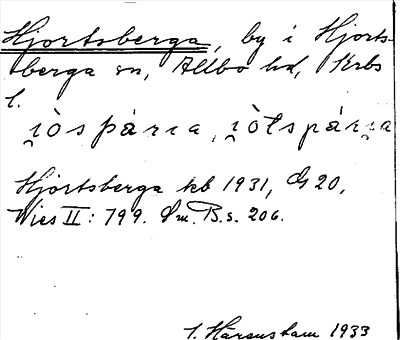 Hjortsberga, by i Hjorts-
berga sn, Allbo hd, Krbs
l.
i̯òspárɪa, i̯òtspárɪ̯a
Hjortsberga kb 1931, G 20,
Wies II: 799. Sm. B. s. 206.
1933